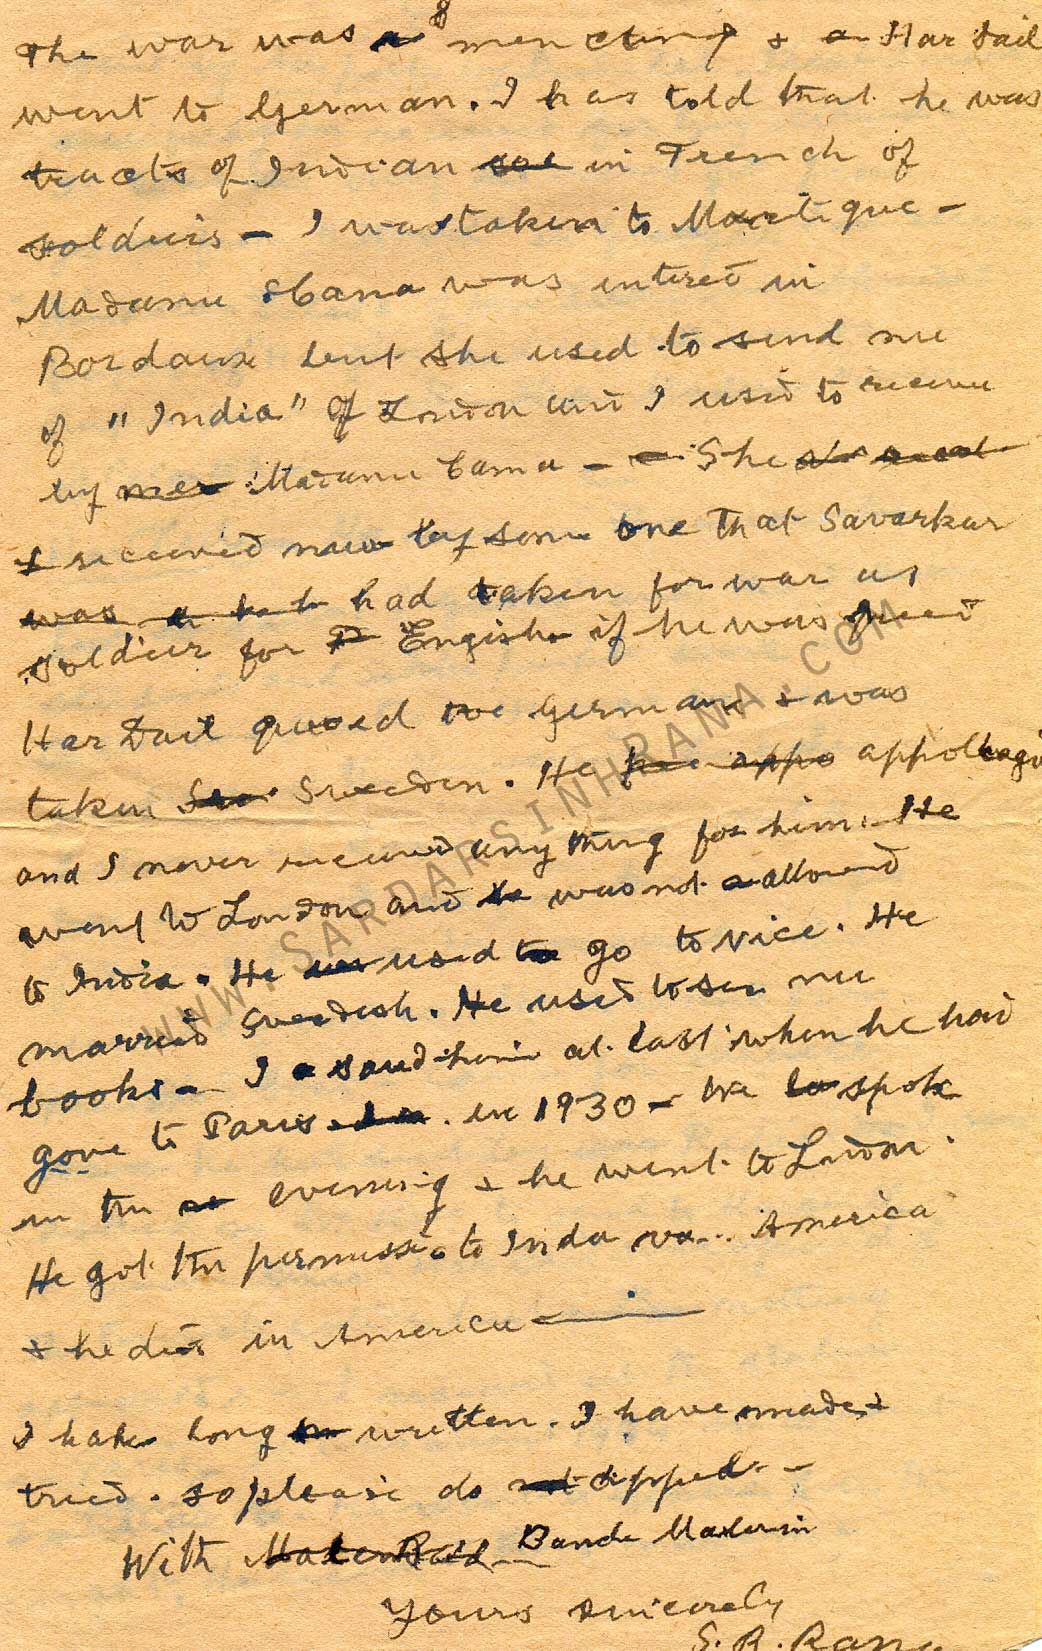 The war was mencting & Har Dail
went to German. I has told that he was
tracts of Indian in Trench of
soldiers - I was taken to Martique -
Madame Cama was intired in
Bordaux but she used to send me
of "India" of London and I used to receive
by Madame Cama - She
I received new by some one that Savarkar
had taken for war as
soldier for Engish if he was freed
Har Dail the German & was
taken Sweeden. He
and I never received any thing for him. He
went to London and was not allowed
to India. He used to go to Nice. He
married Swedish. He used to me
books - I him at last when he had
gone to Paris in 1930 - We spoke
in the evening & he went to London.
He got the permissi. to Inda America
& he died in America
I long written. I have made
tried. so please do
With Bande Materam
Yours sincerely
S. R. Rana
WWW.SARDARSINHRANA.COM